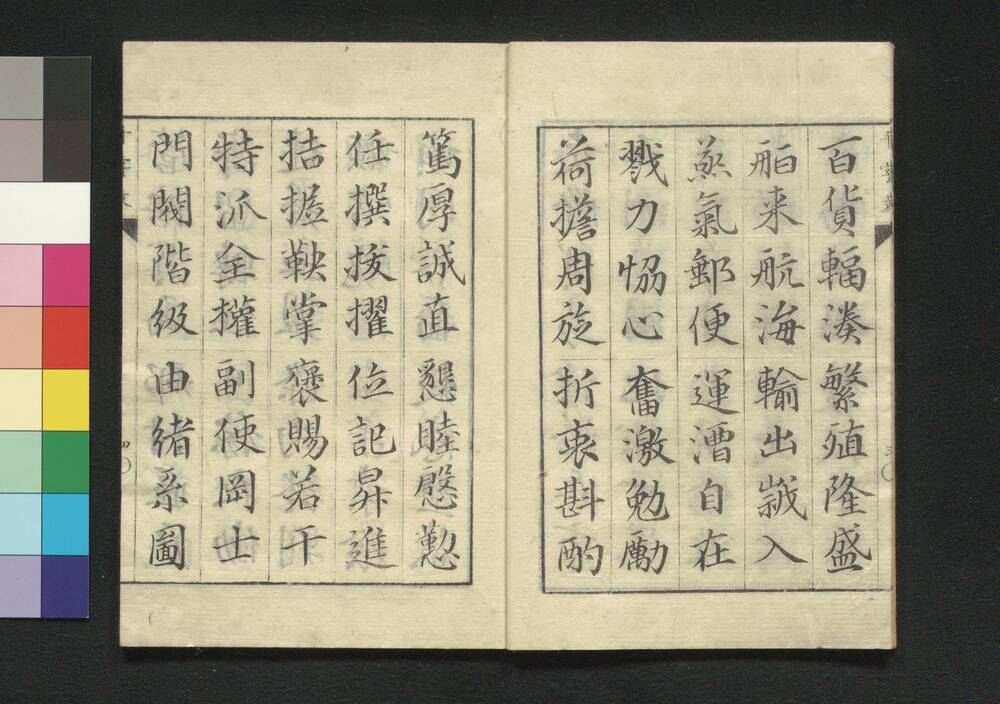 百貨輻湊繁殖隆盛
舶来航海輸出誡入
蒸氣郵便運漕自在
戮力恊心奮激勉勵
荷擔周旋折衷斟酌
篤厚誠直懇睦慇懃
任撰拔擢位記昇進
拮据鞅掌褒賜若干
特派全權副使岡士
門閥階級由緒系圖